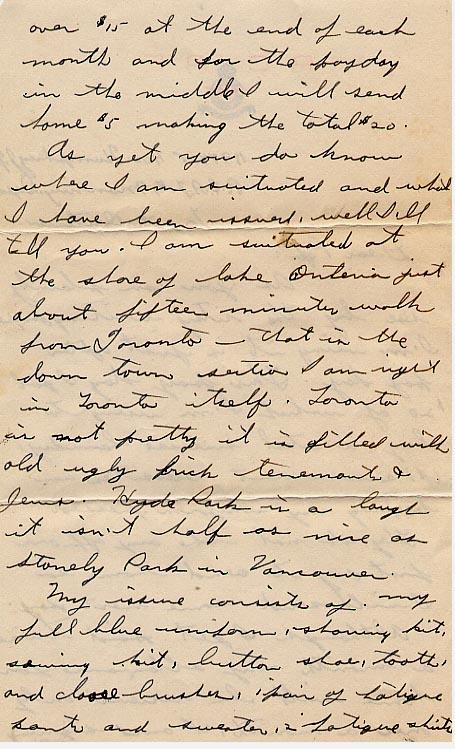 over $15 at the end of each
month and for the payday
in the middle I will send
home $5 making the total $20.
As yet you do know
where I am suituated and what
I have been issued, well I'll
tell you. I am suituated at
the shore of lake Onterio just
about fifteen minutes walk
from Toronto – that in the
down town section I am right
in Toronto itself. Toronto
is not pretty it is filled with
old ugly brick tenemants &
Jews. Hyde Park is a laugh
it isn't half as nice as
Stonely Park in Vancouver.
My issue consists of. my
full blue uniform, shaving kit,
sewing kit, button shoe, tooth,
and brushes, 1 pair of fatigue
pants and sweater, 2 fatigue shirts